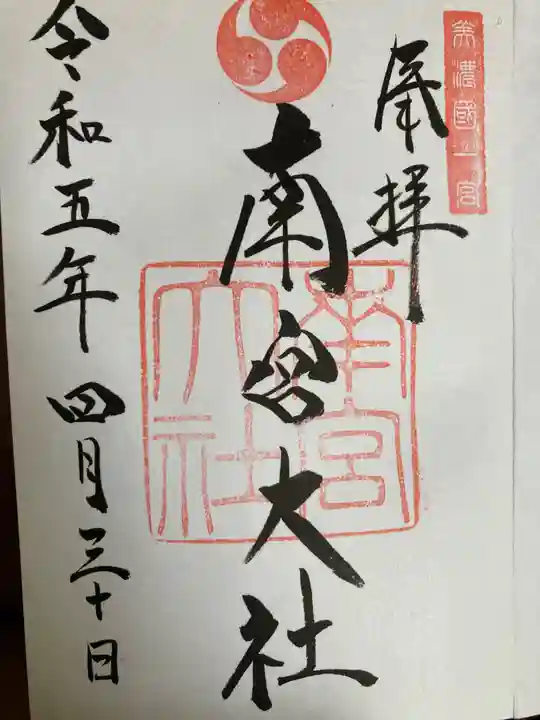 美濃國一宮
奉拝
南宮大社
南宮
大社
令和五年四月三十日